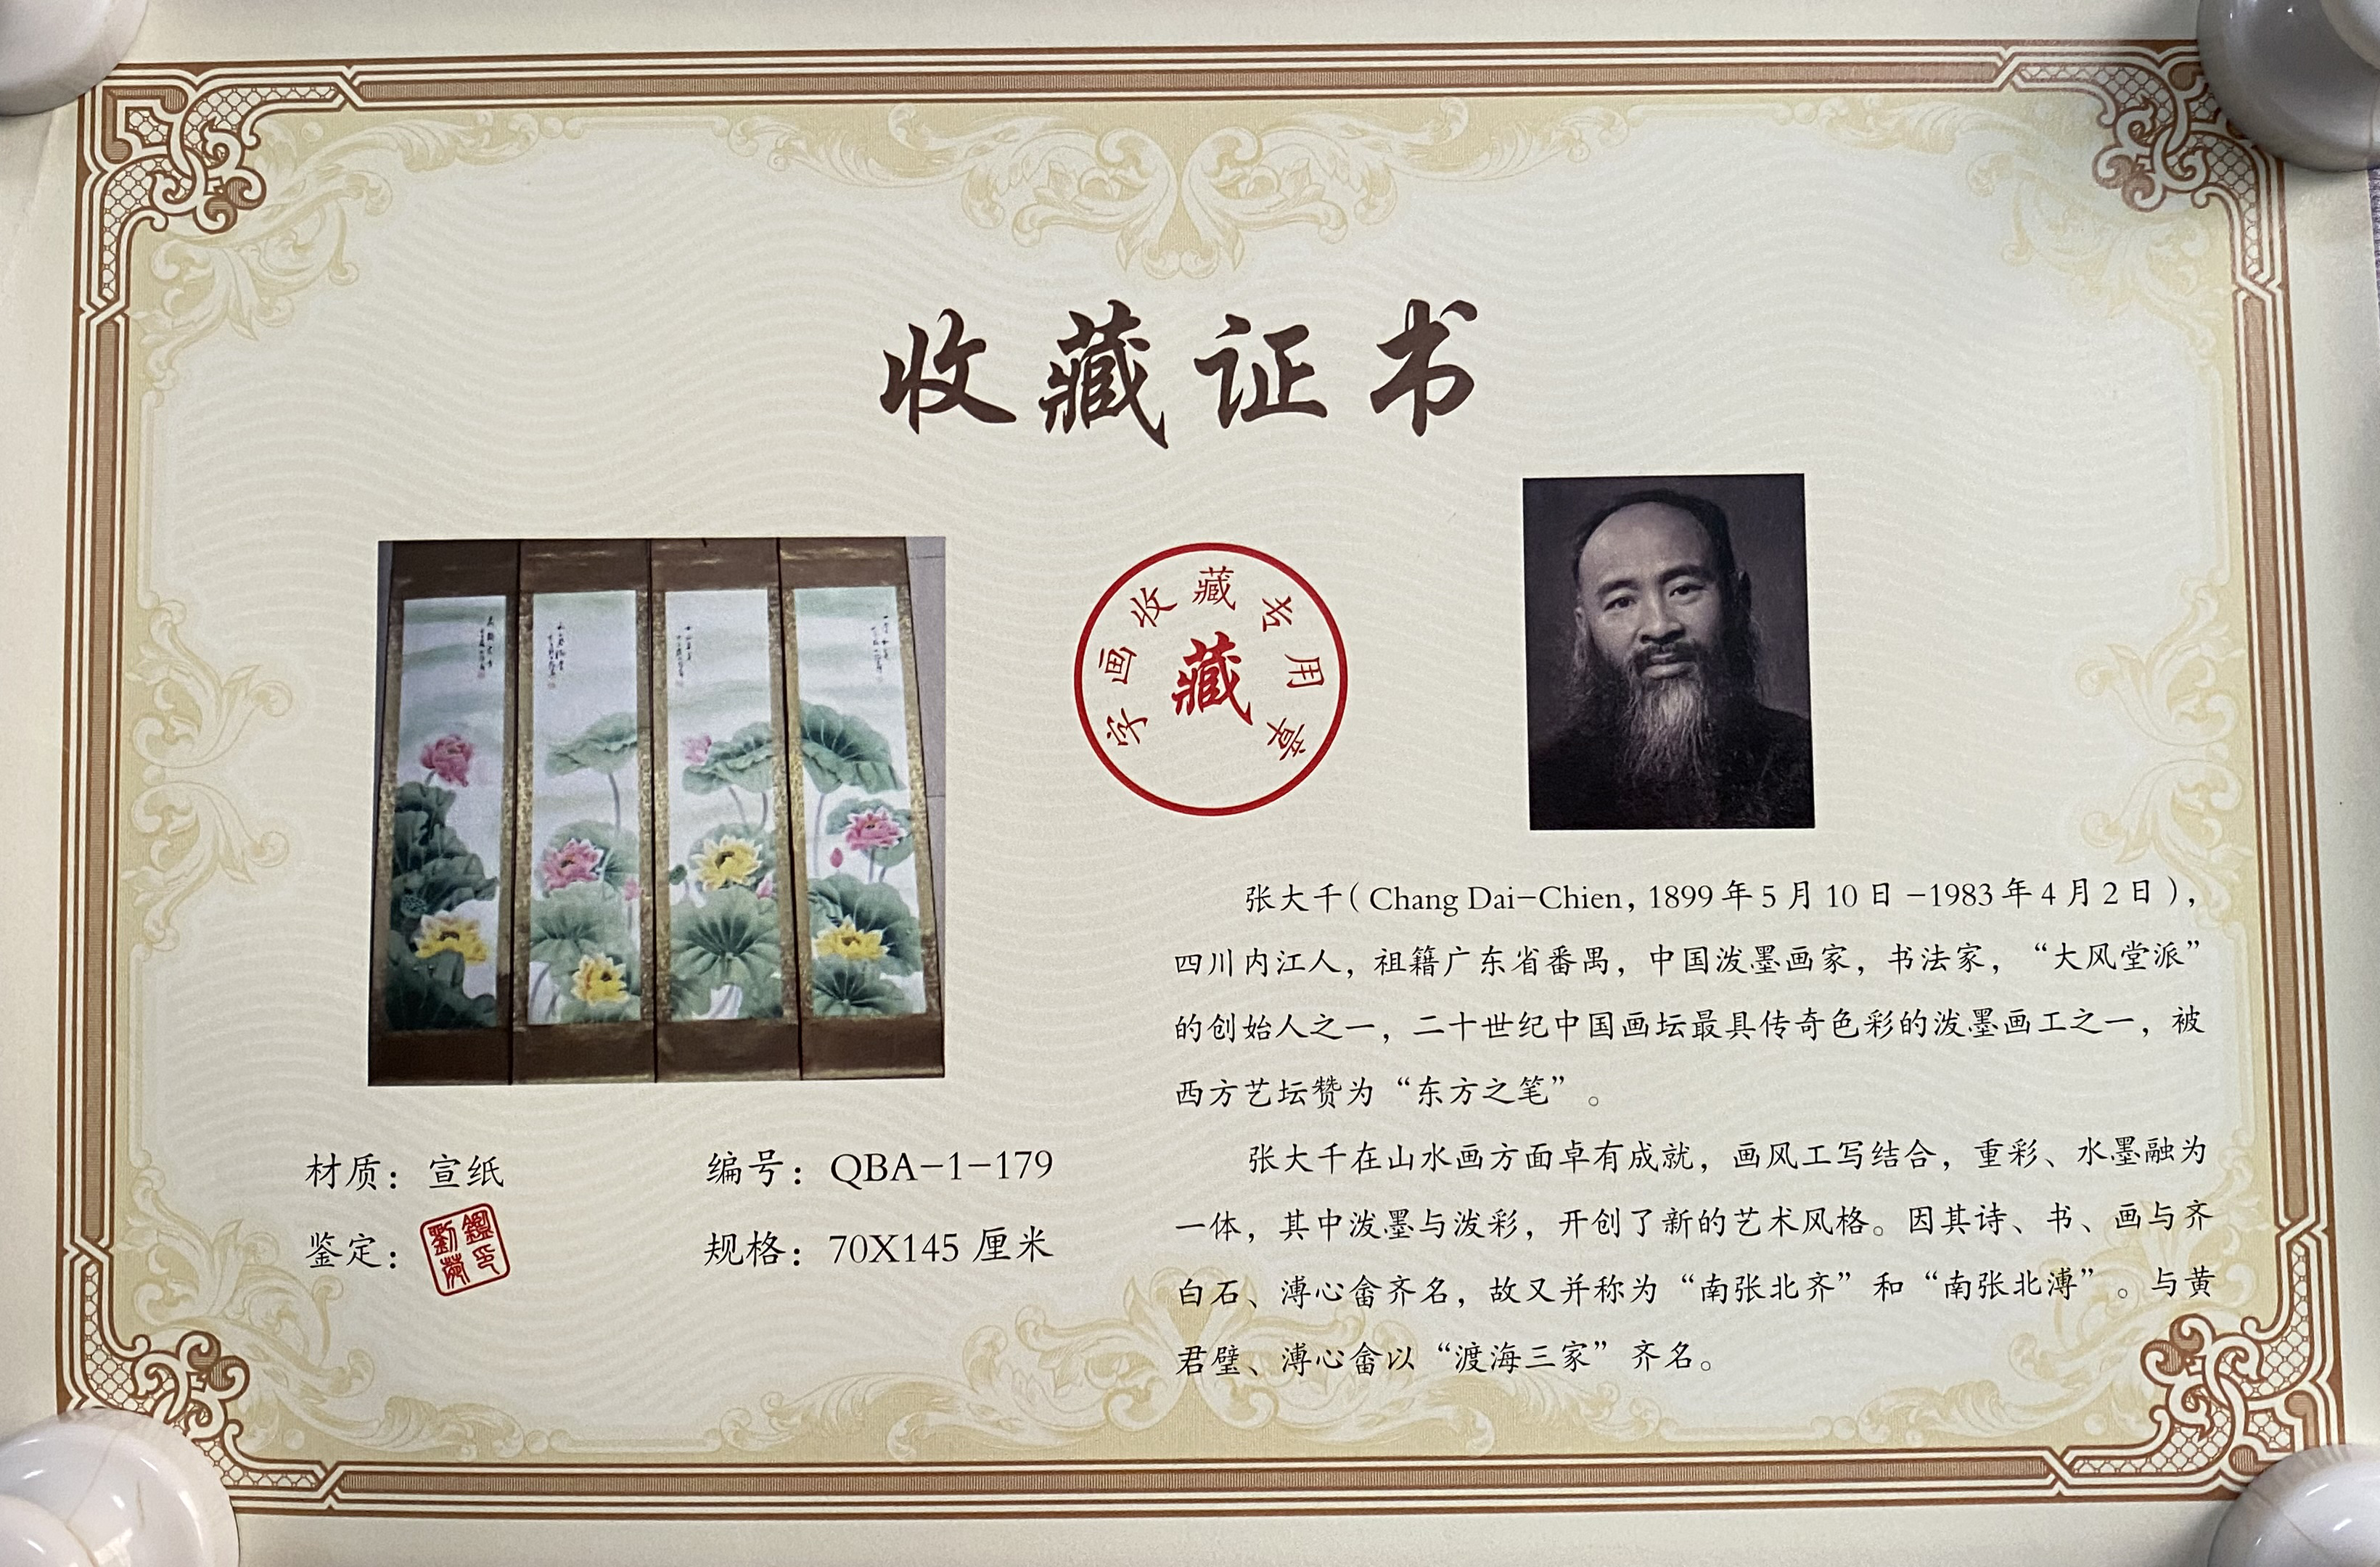 收藏证书
字画收藏书用章
藏
材质：宣纸
编号：QBA-1-179
鉴定：
规格：70X145 厘米
张大千（Chang Dai-Chien, 1899年5月10日-1983年4月2日），
四川内江人，祖籍广东省番禺，中国泼墨画家，书法家，“大风堂派”
的创始人之一，二十世纪中国画坛最具传奇色彩的泼墨画工之一，被
西方艺坛赞为“东方之笔”。
张大千在山水画方面卓有成就，画风工写结合，重彩、水墨融为
一体，其中泼墨与泼彩，开创了新的艺术风格。因其诗、书、画与齐
白石、溥心畬齐名，故又并称为“南张北齐”和“南张北溥”。与黄
君璧、溥心畬以“渡海三家”齐名。